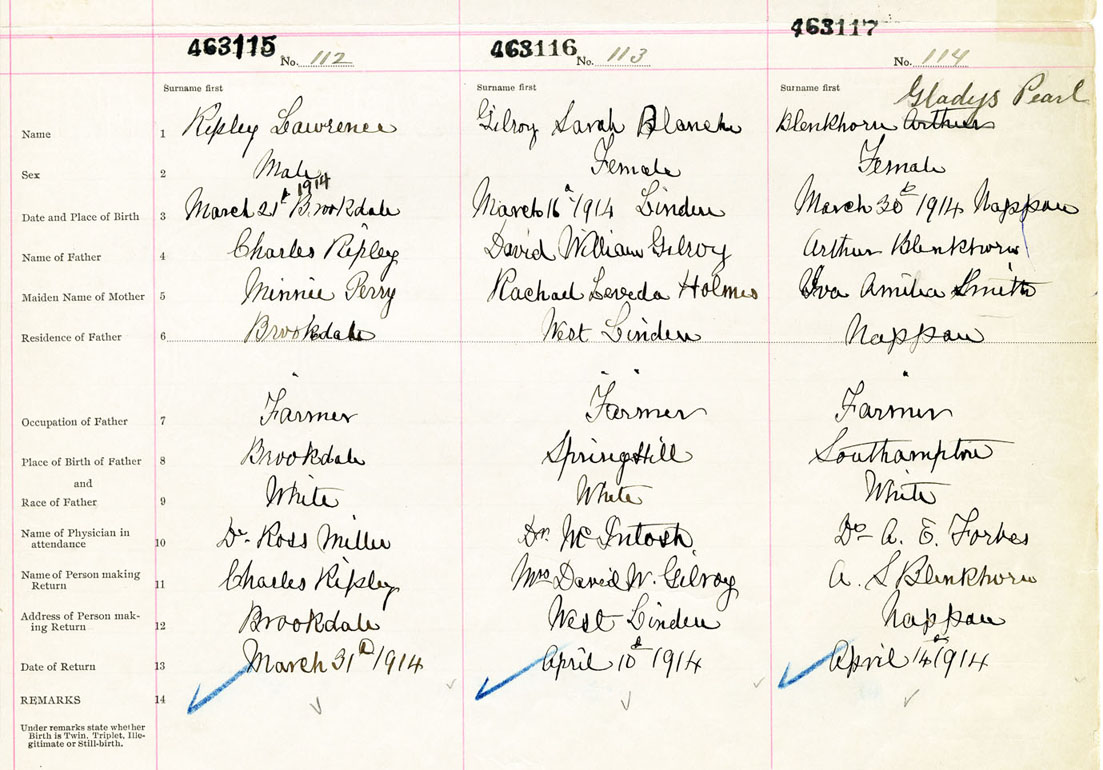 463115 463116 463117
No. 112 No. 113 No. 114
Surname first Surname first Surname first
Gladys Pearl
Name 1 Ripley Lawrence Gilroy Sarah Blanche Blenkhorn Arthur
Sex 2 Male Female Female
1914
Date and Place of Birth 3 March 21st Brookdale March 16th 1914 Linden March 30th 1914 Nappan
Name of Father 4 Charles Ripley David William Gilroy Arthur Blenkhorn
Maiden Name of Mother 5 Minnie Perry Rachael Leveda Holmes Iva Amilia Smith
Residence of Father 6 Brookdale West Linden Nappan
" " "
Occupation of Father 7 Farmer Farmer Farmer
Place of Birth of Father 8 Brookdale Springhill Southampton
and
Race of Father 9 White White White
Name of Physician in
attendance 10 Dr. Ross Miller Dr. McIntosh Dr A. E. Forbes
Name of Person making
Return 11 Charles Ripley Mrs David W. Gilroy A. S Blenkhorn
Address of Person mak-
ing Return 12 Brookdale West Linden Nappan
Date of Return 13 March 31st 1914 April 10th 1914 April 14th 1914
REMARKS 14
Under remarks state whether
Birth is Twin, Triplet, Ille-
gitimate or Still-birth.